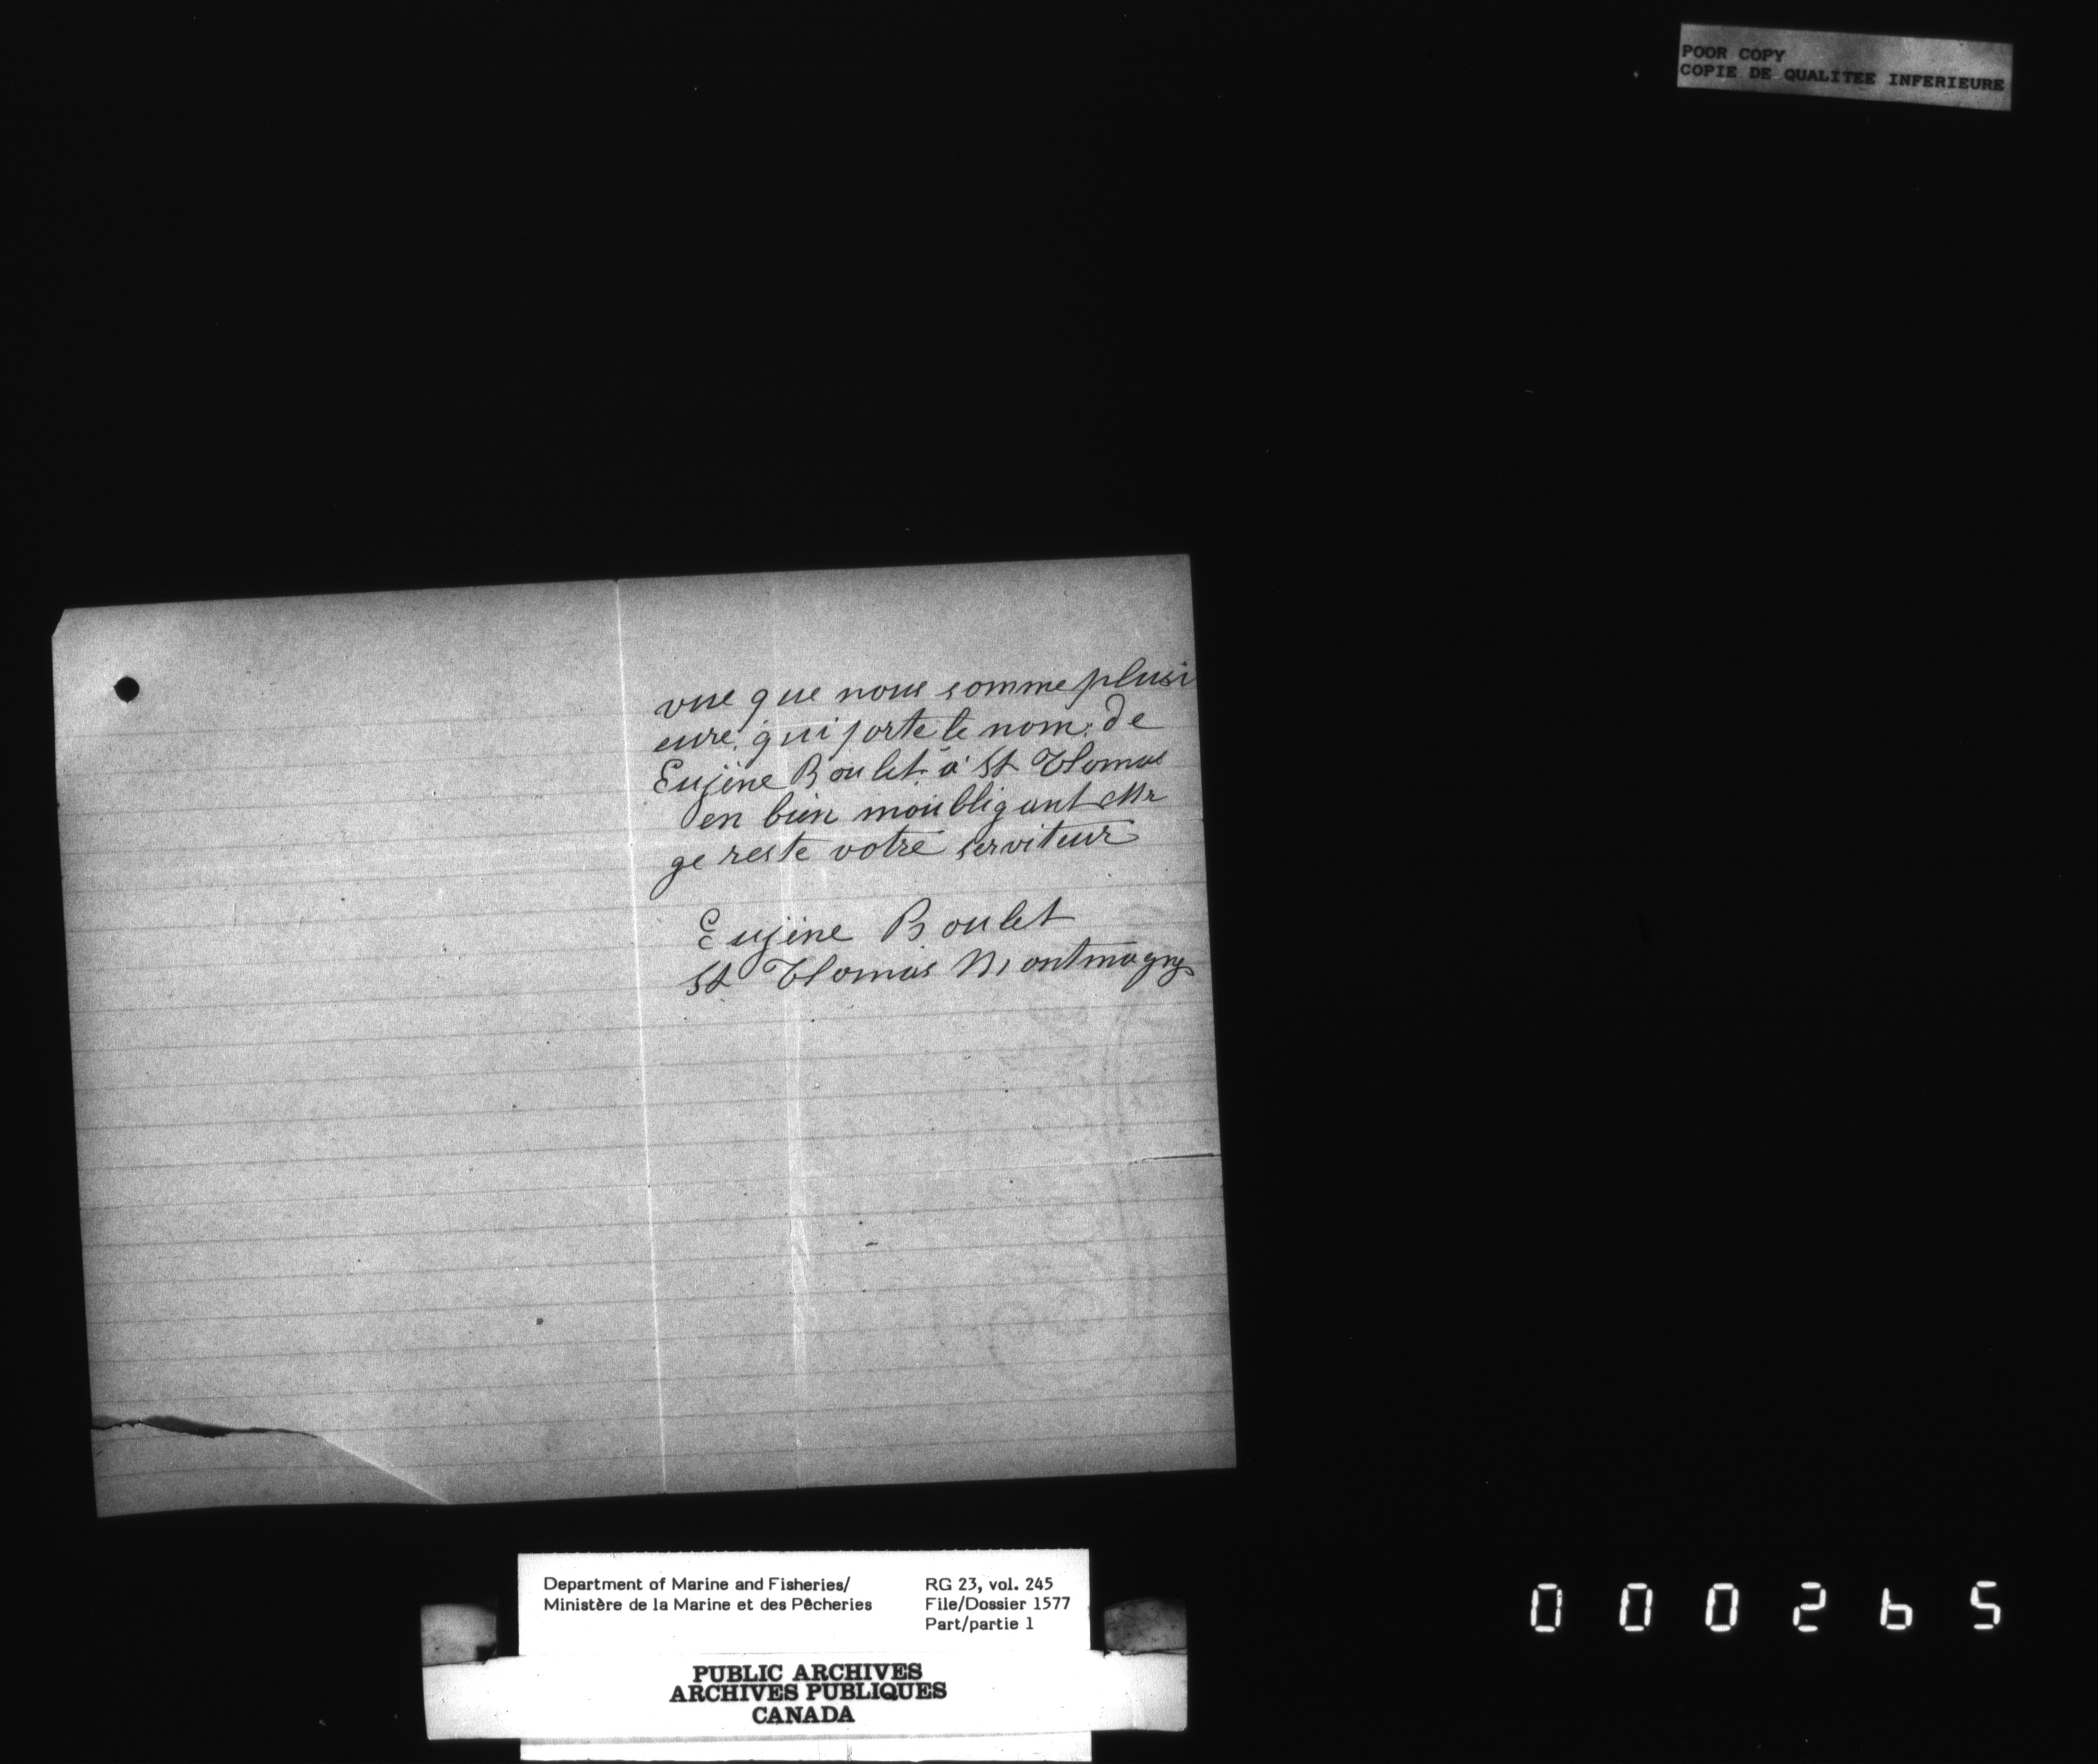 POOR COPY
COPIE DE QUALITEE INFERIEURE
vue que nous somme plusi
eure qui porte le nom de
Eujène Boulet à St Thomas
en bien moubligant Mr
ge reste votre serviteur
Eujène Boulet
St Thomas Montmagny
Department of Marine and Fisheries/
Ministère de la Marine et des Pêcheries
RG 23, vol. 245
File/Dossier 1577
Part/partie 1
PUBLIC ARCHIVES
ARCHIVES PUBLIQUES
CANADA
000265